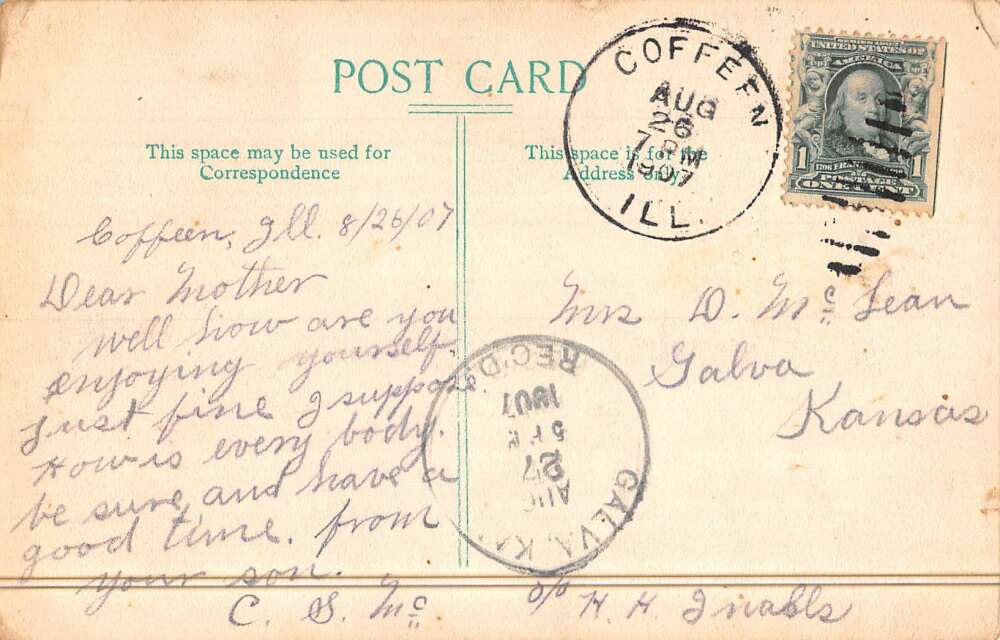 POST CARD
This space may be used for
Correspondence
This space is for the
Address only
COFFEEN
AUG
26
7 PM
1907
ILL.
SERIES 1902
UNITED STATES OF
AMERICA
1706 FRANKLIN 1790
POSTAGE
1 ONE CENT 1
Coffeen, Ill. 8/26/07
Dear Mother
Well how are you
enjoying yourself.
Just fine I suppose.
How is every body.
be sure and have a
good time. from
your son.
C. S. Mc
Mrs D. McLean
Galva
Kansas
c/o H. H.
GALVA, KA
AUG
27
5
1907
REC'D.